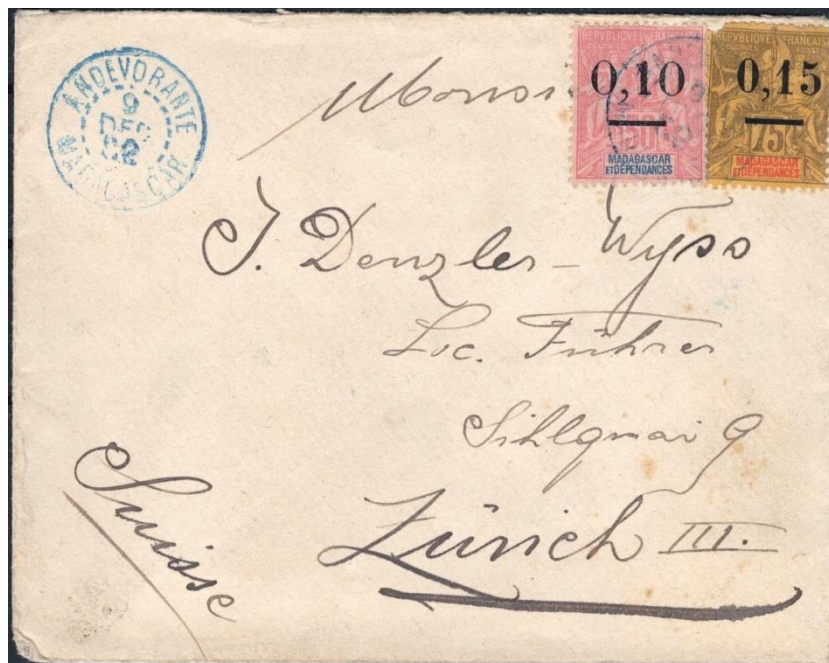 ANDEVORANTE
9
DEC
02
MADAGASCAR
REPUBLIQUE FRANÇAISE
0,10
50
MADAGASCAR
ET DÉPENDANCES
REPUBLIQUE FRANÇAISE
COLONIES POSTES
0,15
75
MADAGASCAR
ET DÉPENDANCES
J. Denzler-Wyss
Loc. Führer
Sihlquai 9
Zürich III.
Suisse